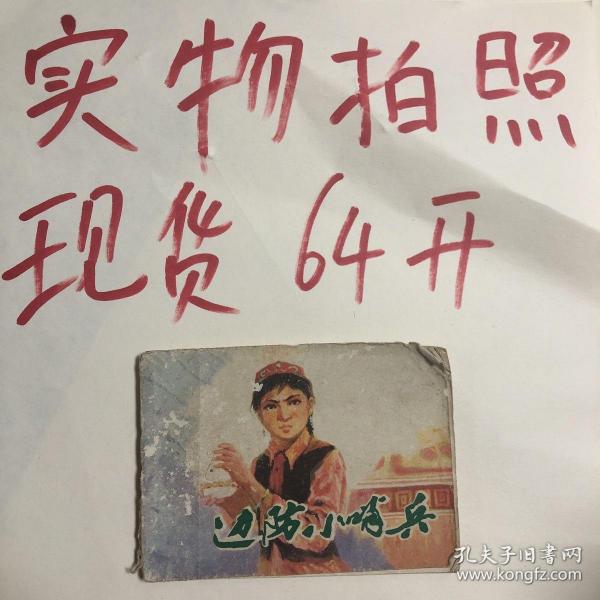 实物拍照
现货 64开
边防小哨兵
孔夫子旧书网
www.kongfz.com